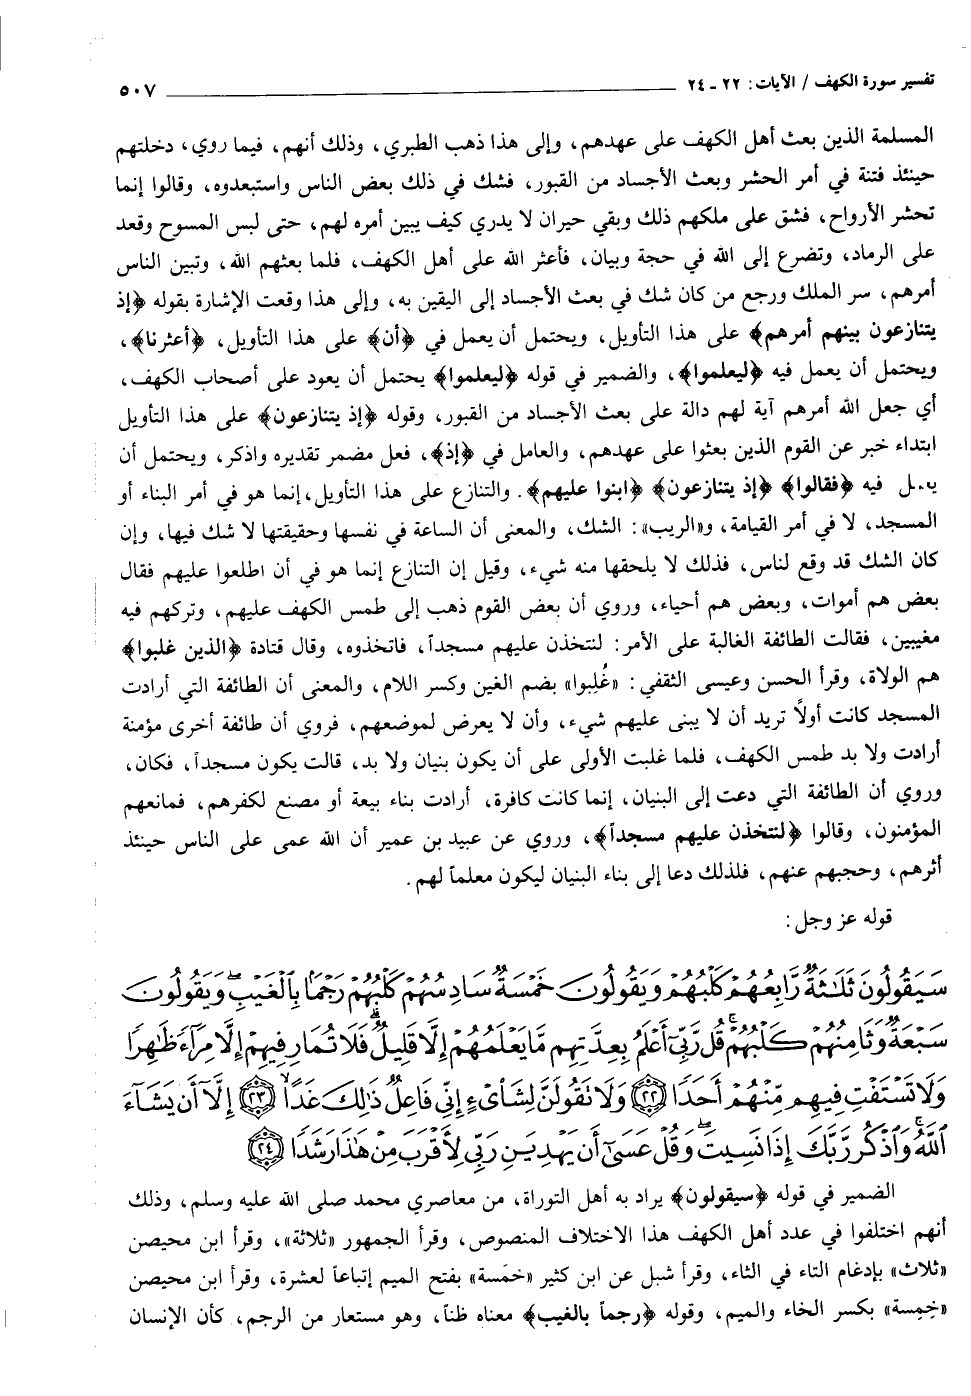 تفسير سورة الكهف / الآيات: ٢٢ - ٢٤ ٥٠٧
المسلمة الذين بعث أهل الكهف على عهدهم، وإلى هذا ذهب الطبري، وذلك أنهم، فيما روي، دخلتهم
حينئذ فتنة في أمر الحشر وبعث الأجساد من القبور، فشك في ذلك بعض الناس واستبعدوه، وقالوا إنما
تحشر الأرواح، فشق على ملكهم ذلك وبقي حيران لا يدري كيف يبين أمره لهم، حتى لبس المسوح وقعد
على الرماد، وتضرع إلى الله في حجة وبيان، فأعثر الله على أهل الكهف، فلما بعثهم الله، وتبين الناس
أمرهم، سر الملك ورجع من كان شك في بعث الأجساد إلى اليقين به، وإلى هذا وقعت الإشارة بقوله ﴿إذ
يتنازعون بينهم أمرهم﴾ على هذا التأويل، ويحتمل أن يعمل في ﴿أن﴾ على هذا التأويل، ﴿أعثرنا﴾،
ويحتمل أن يعمل فيه ﴿ليعلموا﴾، والضمير في قوله ﴿ليعلموا﴾ يحتمل أن يعود على أصحاب الكهف،
أي جعل الله أمرهم آية لهم دالة على بعث الأجساد من القبور، وقوله ﴿إذ يتنازعون﴾ على هذا التأويل
ابتداء خبر عن القوم الذين بعثوا على عهدهم، والعامل في ﴿إذ﴾، فعل مضمر تقديره واذكر، ويحتمل أن
يعمل فيه ﴿فقالوا﴾ ﴿إذ يتنازعون﴾ ﴿ابنوا عليهم﴾. والتنازع على هذا التأويل، إنما هو في أمر البناء أو
المسجد، لا في أمر القيامة، و«الريب»: الشك، والمعنى أن الساعة في نفسها وحقيقتها لا شك فيها، وإن
كان الشك قد وقع لناس، فذلك لا يلحقها منه شيء، وقيل إن التنازع إنما هو في أن اطلعوا عليهم فقال
بعض هم أموات، وبعض هم أحياء، وروي أن بعض القوم ذهب إلى طمس الكهف عليهم، وتركهم فيه
مغيبين، فقالت الطائفة الغالبة على الأمر: لنتخذن عليهم مسجداً، فاتخذوه، وقال قتادة ﴿الذين غلبوا﴾
هم الولاة، وقرأ الحسن وعيسى الثقفي: «غُلِبوا» بضم الغين وكسر اللام، والمعنى أن الطائفة التي أرادت
المسجد كانت أولاً تريد أن لا يبنى عليهم شيء، وأن لا يعرض لموضعهم، فروي أن طائفة أخرى مؤمنة
أرادت ولا بد طمس الكهف، فلما غلبت الأولى على أن يكون بنيان ولا بد، قالت يكون مسجداً، فكان،
وروي أن الطائفة التي دعت إلى البنيان، إنما كانت كافرة، أرادت بناء بيعة أو مصنع لكفرهم، فمانعهم
المؤمنون، وقالوا ﴿لنتخذن عليهم مسجداً﴾، وروي عن عبيد بن عمير أن الله عمى على الناس حينئذ
أثرهم، وحجبهم عنهم، فلذلك دعا إلى بناء البنيان ليكون معلماً لهم.
قوله عز وجل:
سَيَقُولُونَ ثَلَٰثَةٌ رَّابِعُهُمْ كَلْبُهُمْ وَيَقُولُونَ خَمْسَةٌ سَادِسُهُمْ كَلْبُهُمْ رَجْمًا بِالْغَيْبِ ۖ وَيَقُولُونَ
سَبْعَةٌ وَثَامِنُهُمْ كَلْبُهُمْ ۚ قُل رَّبِّي أَعْلَمُ بِعِدَّتِهِم مَّا يَعْلَمُهُمْ إِلَّا قَلِيلٌ ۗ فَلَا تُمَارِ فِيهِمْ إِلَّا مِرَآءً ظَٰهِرًا
وَلَا تَسْتَفْتِ فِيهِم مِّنْهُمْ أَحَدًا ﴿٢٢﴾ وَلَا تَقُولَنَّ لِشَا۟ىْءٍ إِنِّي فَاعِلٌ ذَٰلِكَ غَدًا ﴿٢٣﴾ إِلَّآ أَن يَشَآءَ
ٱللَّهُ ۚ وَٱذْكُر رَّبَّكَ إِذَا نَسِيتَ ۖ وَقُلْ عَسَىٰٓ أَن يَهْدِيَنِ رَبِّي لِأَقْرَبَ مِنْ هَٰذَا رَشَدًا ﴿٢٤﴾
الضمير في قوله ﴿سيقولون﴾ يراد به أهل التوراة، من معاصري محمد صلى الله عليه وسلم، وذلك
أنهم اختلفوا في عدد أهل الكهف هذا الاختلاف المنصوص، وقرأ الجمهور «ثلاثة»، وقرأ ابن محيصن
«ثلاث» بإدغام التاء في الثاء، وقرأ شبل عن ابن كثير «خمَسة» بفتح الميم إتباعاً لعشرة، وقرأ ابن محيصن
«خِمِسة» بكسر الخاء والميم، وقوله ﴿رجماً بالغيب﴾ معناه ظناً، وهو مستعار من الرجم، كأن الإنسان